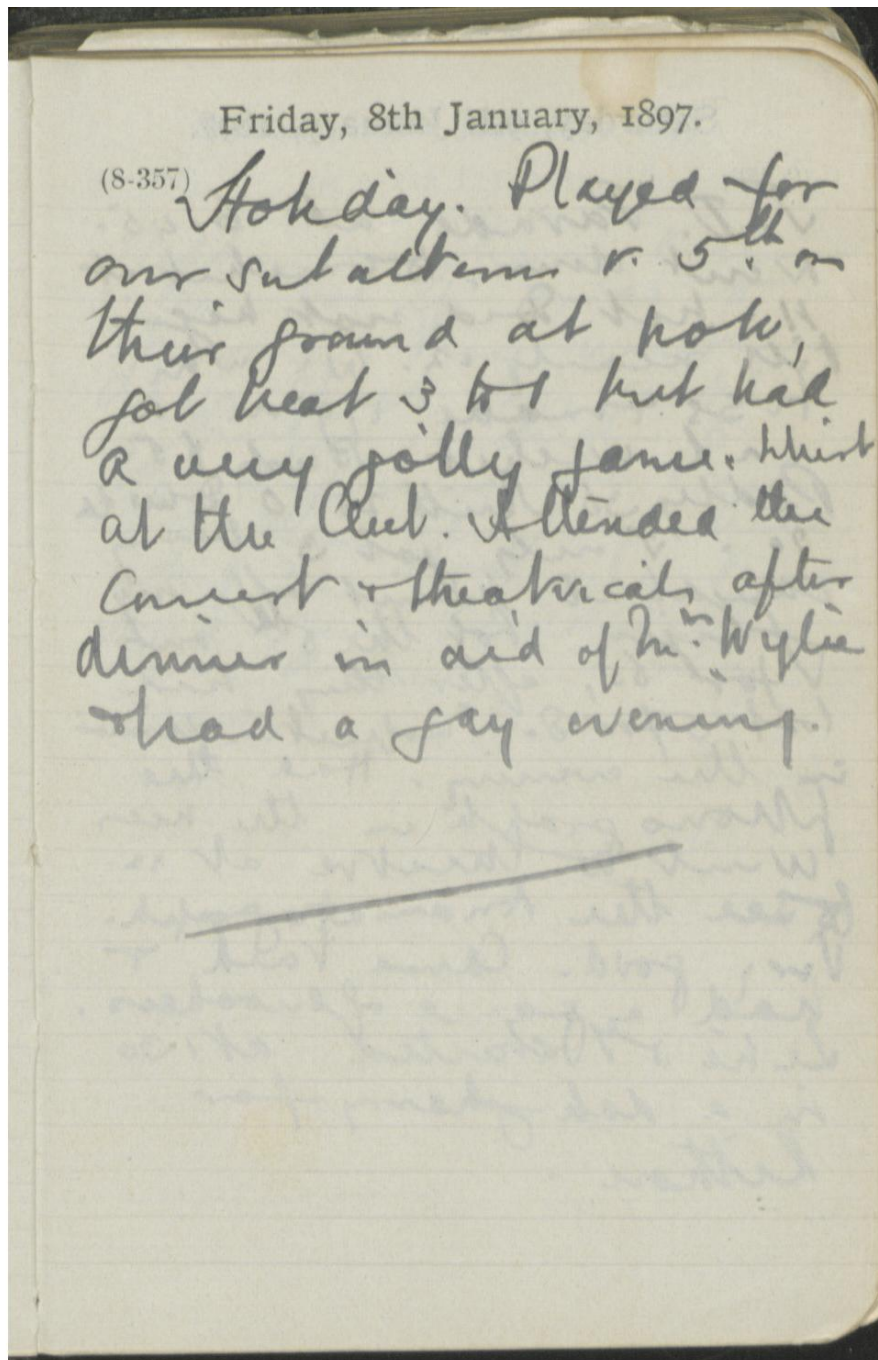 Friday, 8th January, 1897.
(8-357)
Holiday. Played for
our subalterns v. 5th on
their ground at polo,
got beat 3 to 1 but had
a very jolly game. Whist
at the Club. Attended the
Concert & theatricals after
dinner in aid of Mrs. Wylie
& had a gay evening.